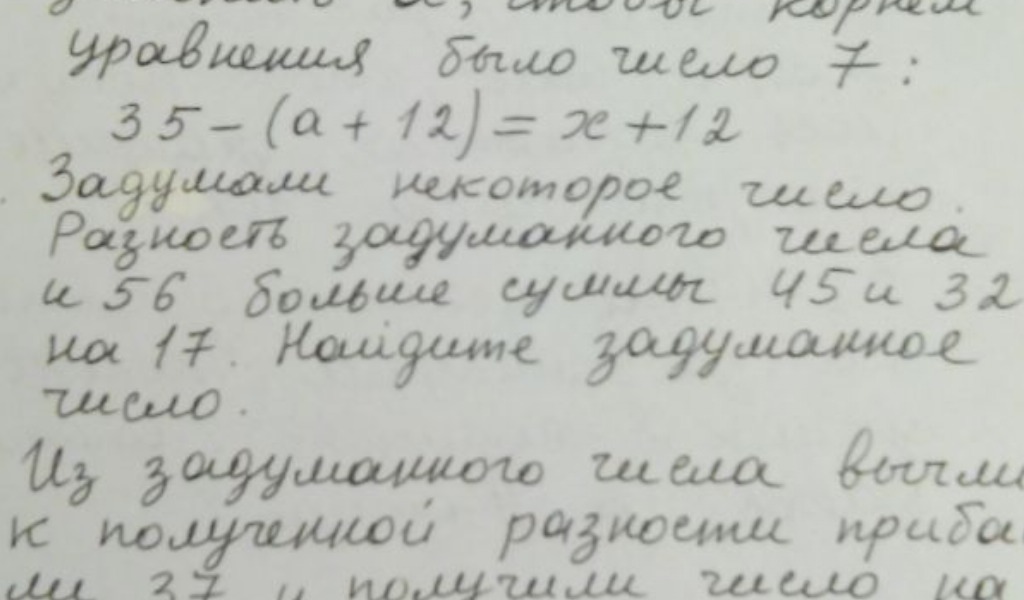 чтобы корнем
уравнения было число 7:
35 - (a + 12) = x + 12
Задумали некоторое число.
Разность задуманного числа
и 56 больше суммы 45 и 32
на 17. Найдите задуманное
число.
Из задуманного числа вычли
к полученной разности приба
ли 37 и получили число на